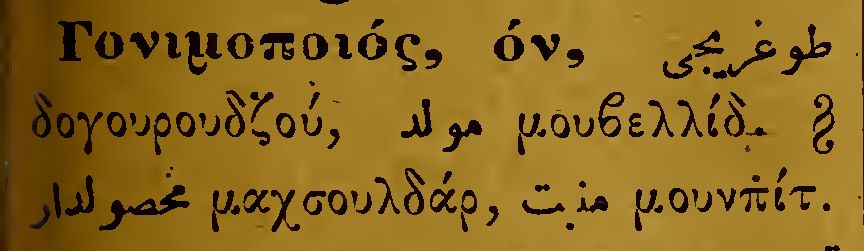 Γονιμοποιός, όν, طوغریجی
δογουρουδζού, مولد μουβελλίδ. §
محصولدار μαχσουλδάρ, منبت μουνπίτ.